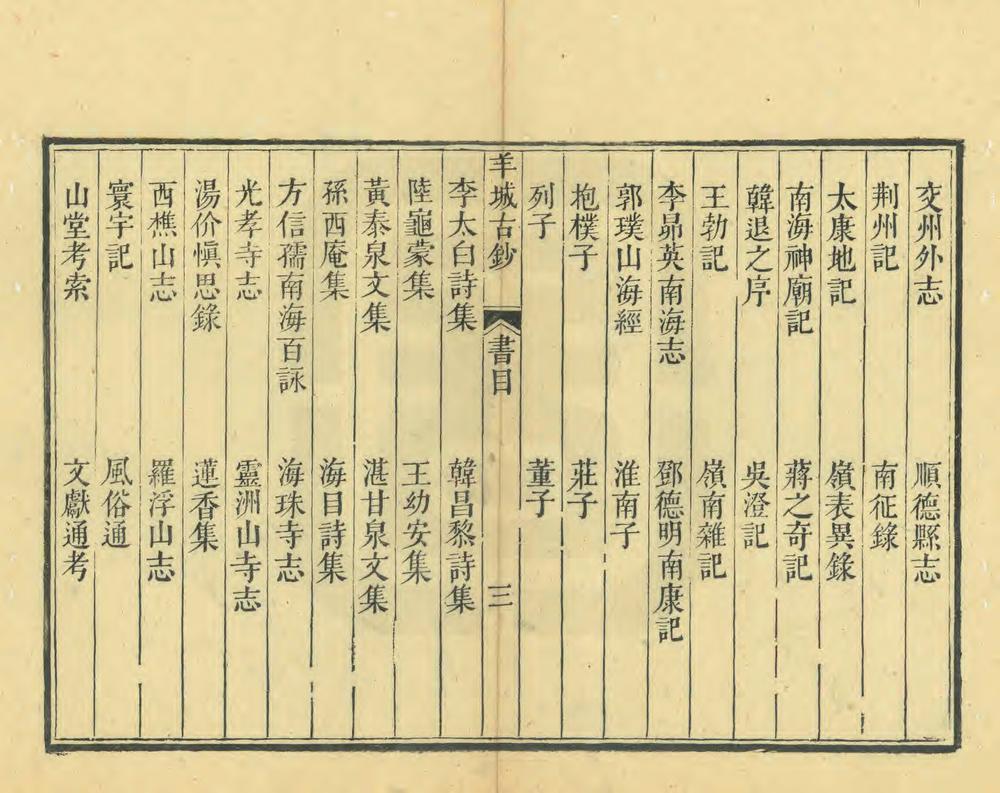 交州外志　順德縣志
荆州記　南征錄
太康地記　嶺表異錄
南海神廟記　蔣之奇記
韓退之序　吳澄記
王勃記　嶺南雜記
李昴英南海志　鄧德明南康記
郭璞山海經　淮南子
抱樸子　莊子
列子　董子
羊城古鈔　書目　三
李太白詩集　韓昌黎詩集
陸龜蒙集　王幼安集
黃泰泉文集　湛甘泉文集
孫西庵集　海目詩集
方信孺南海百詠　海珠寺志
光孝寺志　靈洲山寺志
湯价慎思錄　蓮香集
西樵山志　羅浮山志
寰宇記　風俗通
山堂考索　文獻通考